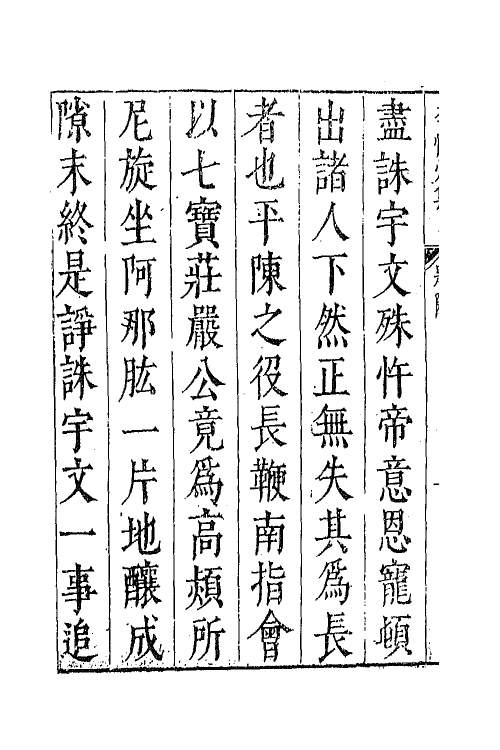 盡誅宇文殊忤帝意恩寵頓
出諸人下然正無失其為長
者也平陳之役長鞭南指會
以七寶莊嚴公竟為高熲所
尼旋坐阿那肱一片地釀成
隙末終是諍誅宇文一事追